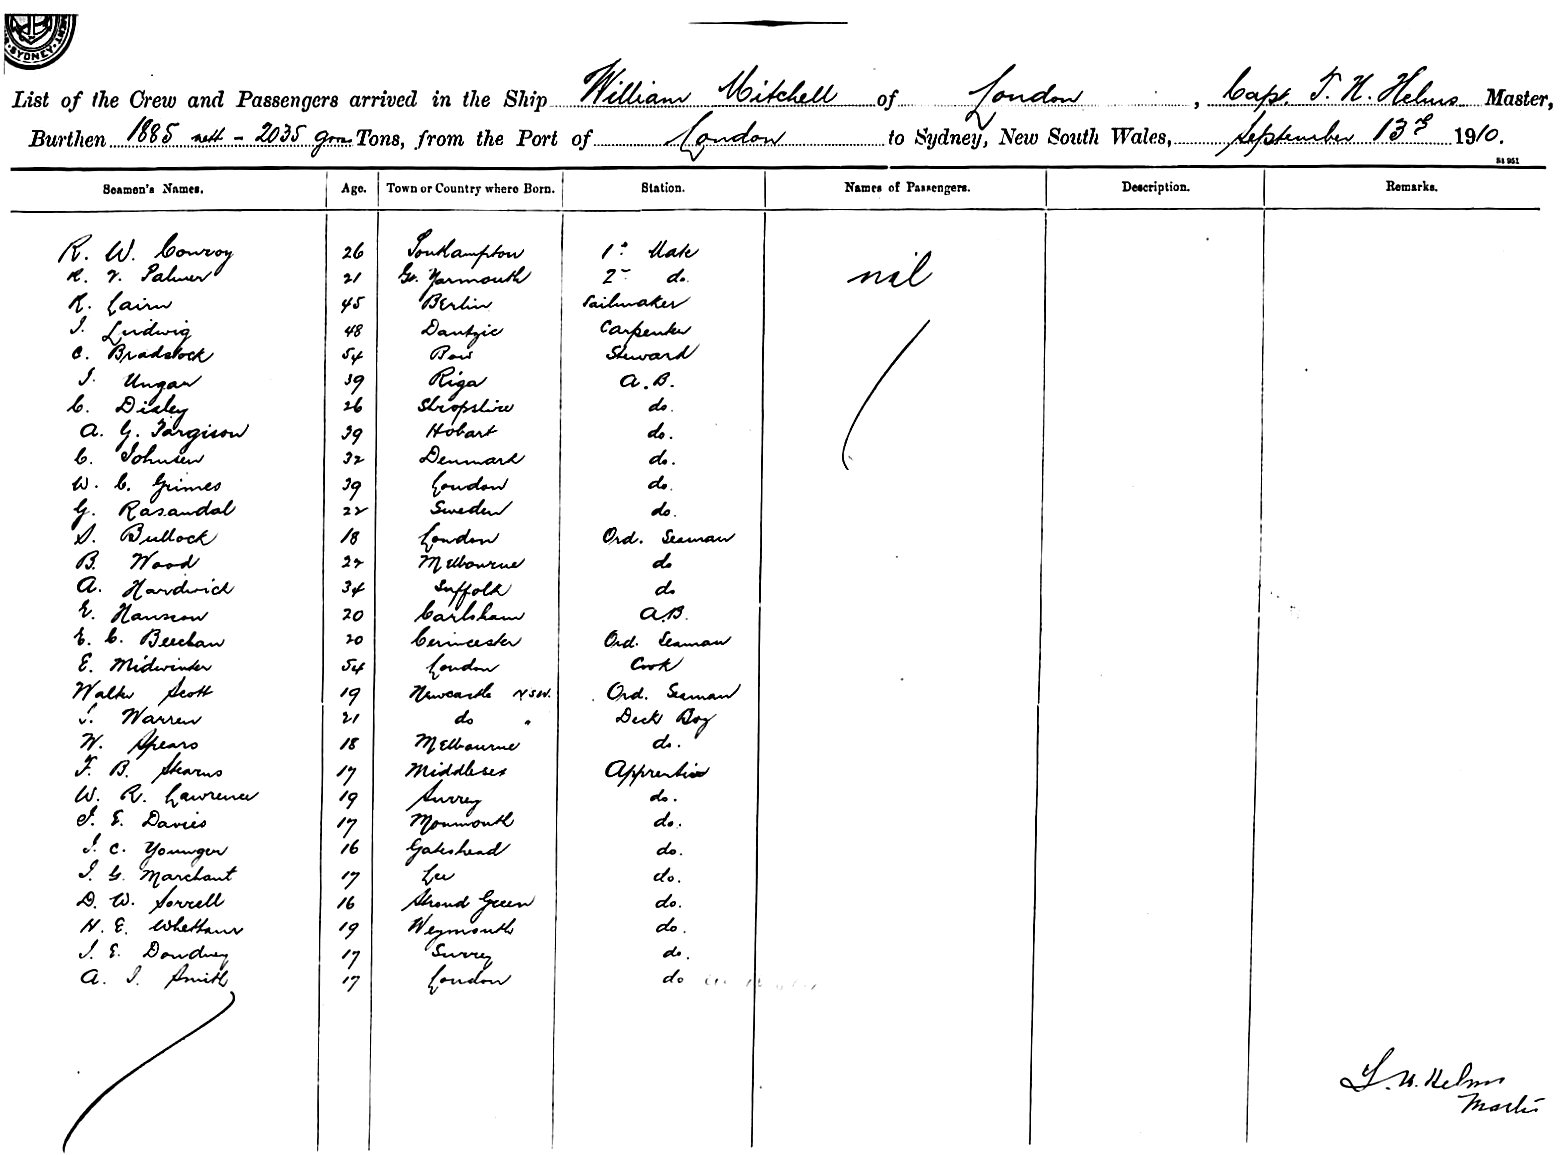 SYDNEY
List of the Crew and Passengers arrived in the Ship William Mitchell of London, Capt. T. H. Helms Master,
Burthen 1885 nett - 2035 gross Tons, from the Port of London to Sydney, New South Wales, September 13th 1910.
St 951
Seamen's Names. Age. Town or Country where Born. Station. Names of Passengers. Description. Remarks.
R. W. Conroy 26 Southampton 1st Mate nil
R. V. Palmer 21 Gt. Yarmouth 2nd do.
R. Cairn 45 Berlin Sailmaker
J. Ludwig 48 Dantzic Carpenter
C. Bradstock 54 Bow Steward
J. Ungar 39 Riga A.B.
C. Disley 26 Shropshire do.
A. G. Fargison 39 Hobart do.
C. Johnsen 32 Denmark do.
W. C. Grimes 39 London do.
G. Rasandal 22 Sweden do.
S. Bullock 18 London Ord. Seaman
B. Wood 22 Melbourne do
A. Hardwick 34 Suffolk do
E. Hanson 20 Carlsham A.B.
E. C. Beechan 20 Cerincester Ord. Seaman
E. Midwinter 54 London Cook
Walter Scott 19 Newcastle NSW. Ord. Seaman
J. Warren 21 do " Deck Boy
W. Spears 18 Melbourne do.
F. B. Stearns 17 Middlesex Apprentice
W. R. Lawrence 19 Surrey do.
J. E. Davies 17 Monmouth do.
J. C. Younger 16 Gateshead do.
J. G. Marchant 17 Lee do.
D. W. Sorrell 16 Stroud Green do.
H. E. Whettam 19 Weymouth do.
J. E. Doudney 17 Surrey do.
A. J. Smith 17 London do
T. H. Helms
Master